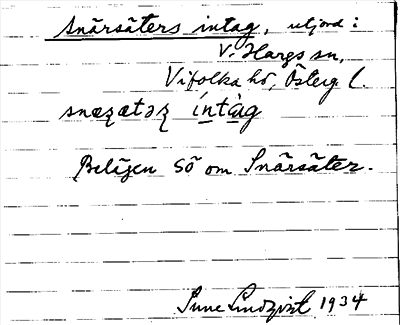 Snärsäters intag, utjord:
V. Hargs sn,
Vifolka hd, Österg l.
snæzætəz íntàg
Belägen SÖ om Snärsäter.
Sune Lindqvist 1934